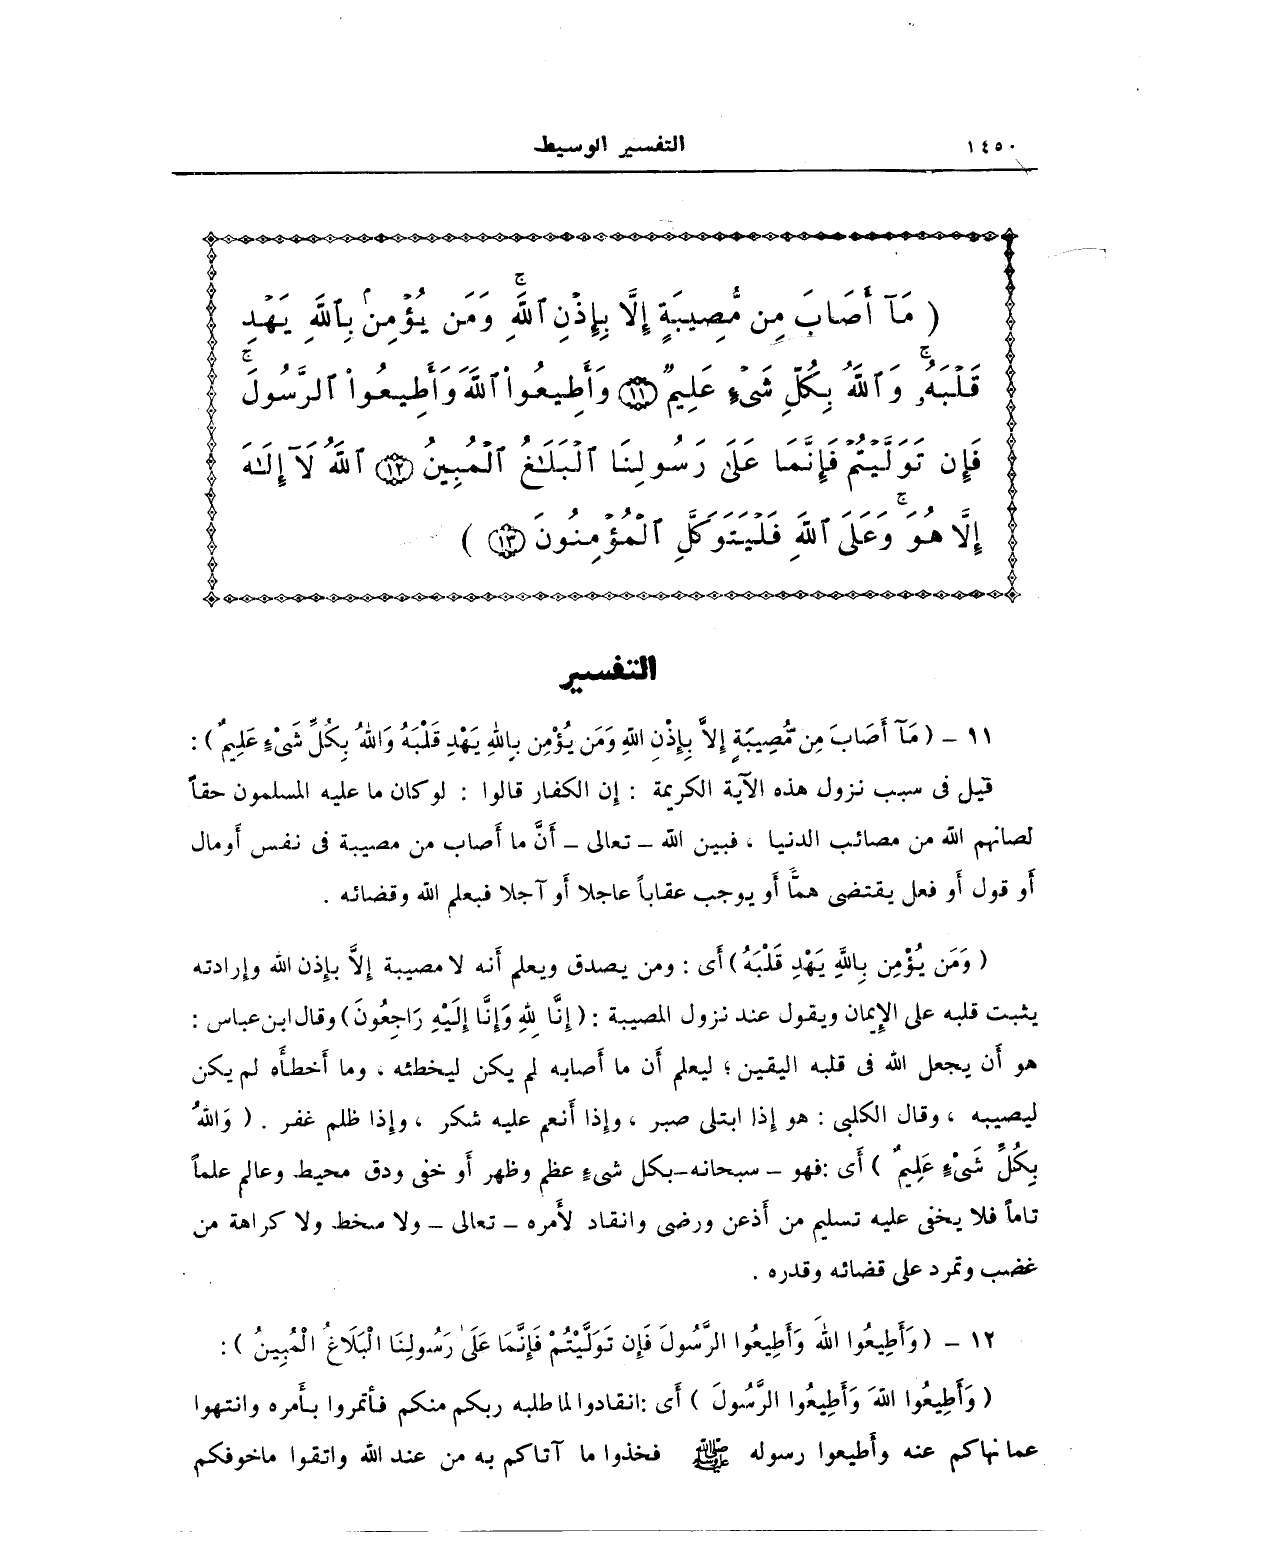 ١٤٥٠ التفسير الوسيط
( مَآ أَصَابَ مِن مُّصِيبَةٍ إِلَّا بِإِذْنِ ٱللَّهِ ۗ وَمَن يُؤْمِنۢ بِٱللَّهِ يَهْدِ
قَلْبَهُۥ ۚ وَٱللَّهُ بِكُلِّ شَىْءٍ عَلِيمٌ ﴿١١﴾ وَأَطِيعُوا۟ ٱللَّهَ وَأَطِيعُوا۟ ٱلرَّسُولَ ۚ
فَإِن تَوَلَّيْتُمْ فَإِنَّمَا عَلَىٰ رَسُولِنَا ٱلْبَلَـٰغُ ٱلْمُبِينُ ﴿١٢﴾ ٱللَّهُ لَآ إِلَـٰهَ
إِلَّا هُوَ ۚ وَعَلَى ٱللَّهِ فَلْيَتَوَكَّلِ ٱلْمُؤْمِنُونَ ﴿١٣﴾ )
التفسير
١١ ـ ( مَآ أَصَابَ مِن مُّصِيبَةٍ إِلاَّ بِإِذْنِ اللهِ وَمَن يُؤْمِن بِاللهِ يَهْدِ قَلْبَهُ وَاللهُ بِكُلِّ شَىْءٍ عَلِيمٌ ) :
قيل فى سبب نزول هذه الآية الكريمة : إن الكفار قالوا : لو كان ما عليه المسلمون حقاً
لصانهم الله من مصائب الدنيا ، فبين الله ـ تعالى ـ أنَّ ما أصاب من مصيبة فى نفس أومال
أو قول أو فعل يقتضى همًّا أو يوجب عقاباً عاجلا أو آجلا فبعلم الله وقضائه .
( وَمَن يُؤْمِن بِاللَّهِ يَهْدِ قَلْبَهُ ) أى : ومن يصدق ويعلم أنه لا مصيبة إلاَّ بإذن الله وإرادته
يثبت قلبه على الإيمان ويقول عند نزول المصيبة : ( إِنَّا لِلهِ وَإِنَّا إِلَيْهِ رَاجِعُونَ ) وقال ابن عباس :
هو أن يجعل الله فى قلبه اليقين ؛ ليعلم أن ما أصابه لم يكن ليخطئه ، وما أخطأه لم يكن
ليصيبه ، وقال الكلبى : هو إذا ابتلى صبر ، وإذا أنعم عليه شكر ، وإذا ظلم غفر . ( وَاللهُ
بِكُلِّ شَىْءٍ عَلِيمٌ ) أى : فهو ـ سبحانه ـ بكل شىءٍ عظم وظهر أو خفى ودق محيط وعالم علماً
تاماً فلا يخفى عليه تسليم من أذعن ورضى وانقاد لأمره ـ تعالى ـ ولا سخط ولا كراهة من
غضب وتمرد على قضائه وقدره .
١٢ ـ ( وَأَطِيعُوا اللهَ وَأَطِيعُوا الرَّسُولَ فَإِن تَوَلَّيْتُمْ فَإِنَّمَا عَلَىٰ رَسُولِنَا الْبَلَاغُ الْمُبِينُ ) :
( وَأَطِيعُوا اللهَ وَأَطِيعُوا الرَّسُولَ ) أى : انقادوا لما طلبه ربكم منكم فأتمروا بأمره وانتهوا
عما نهاكم عنه وأطيعوا رسوله ﷺ فخذوا ما آتاكم به من عند الله واتقوا ماخوفكم